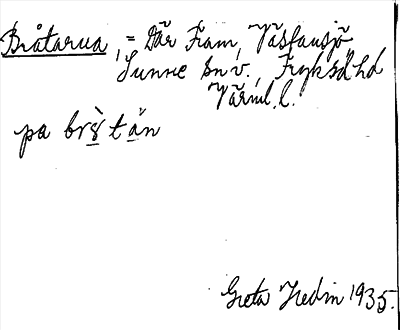 Bråtarna, = Där Fram, Väsfansjö
Sunne sn v., Fryksd. hd
Värml. l.
pa brò̤ tä̤n
Greta Hedin 1935.